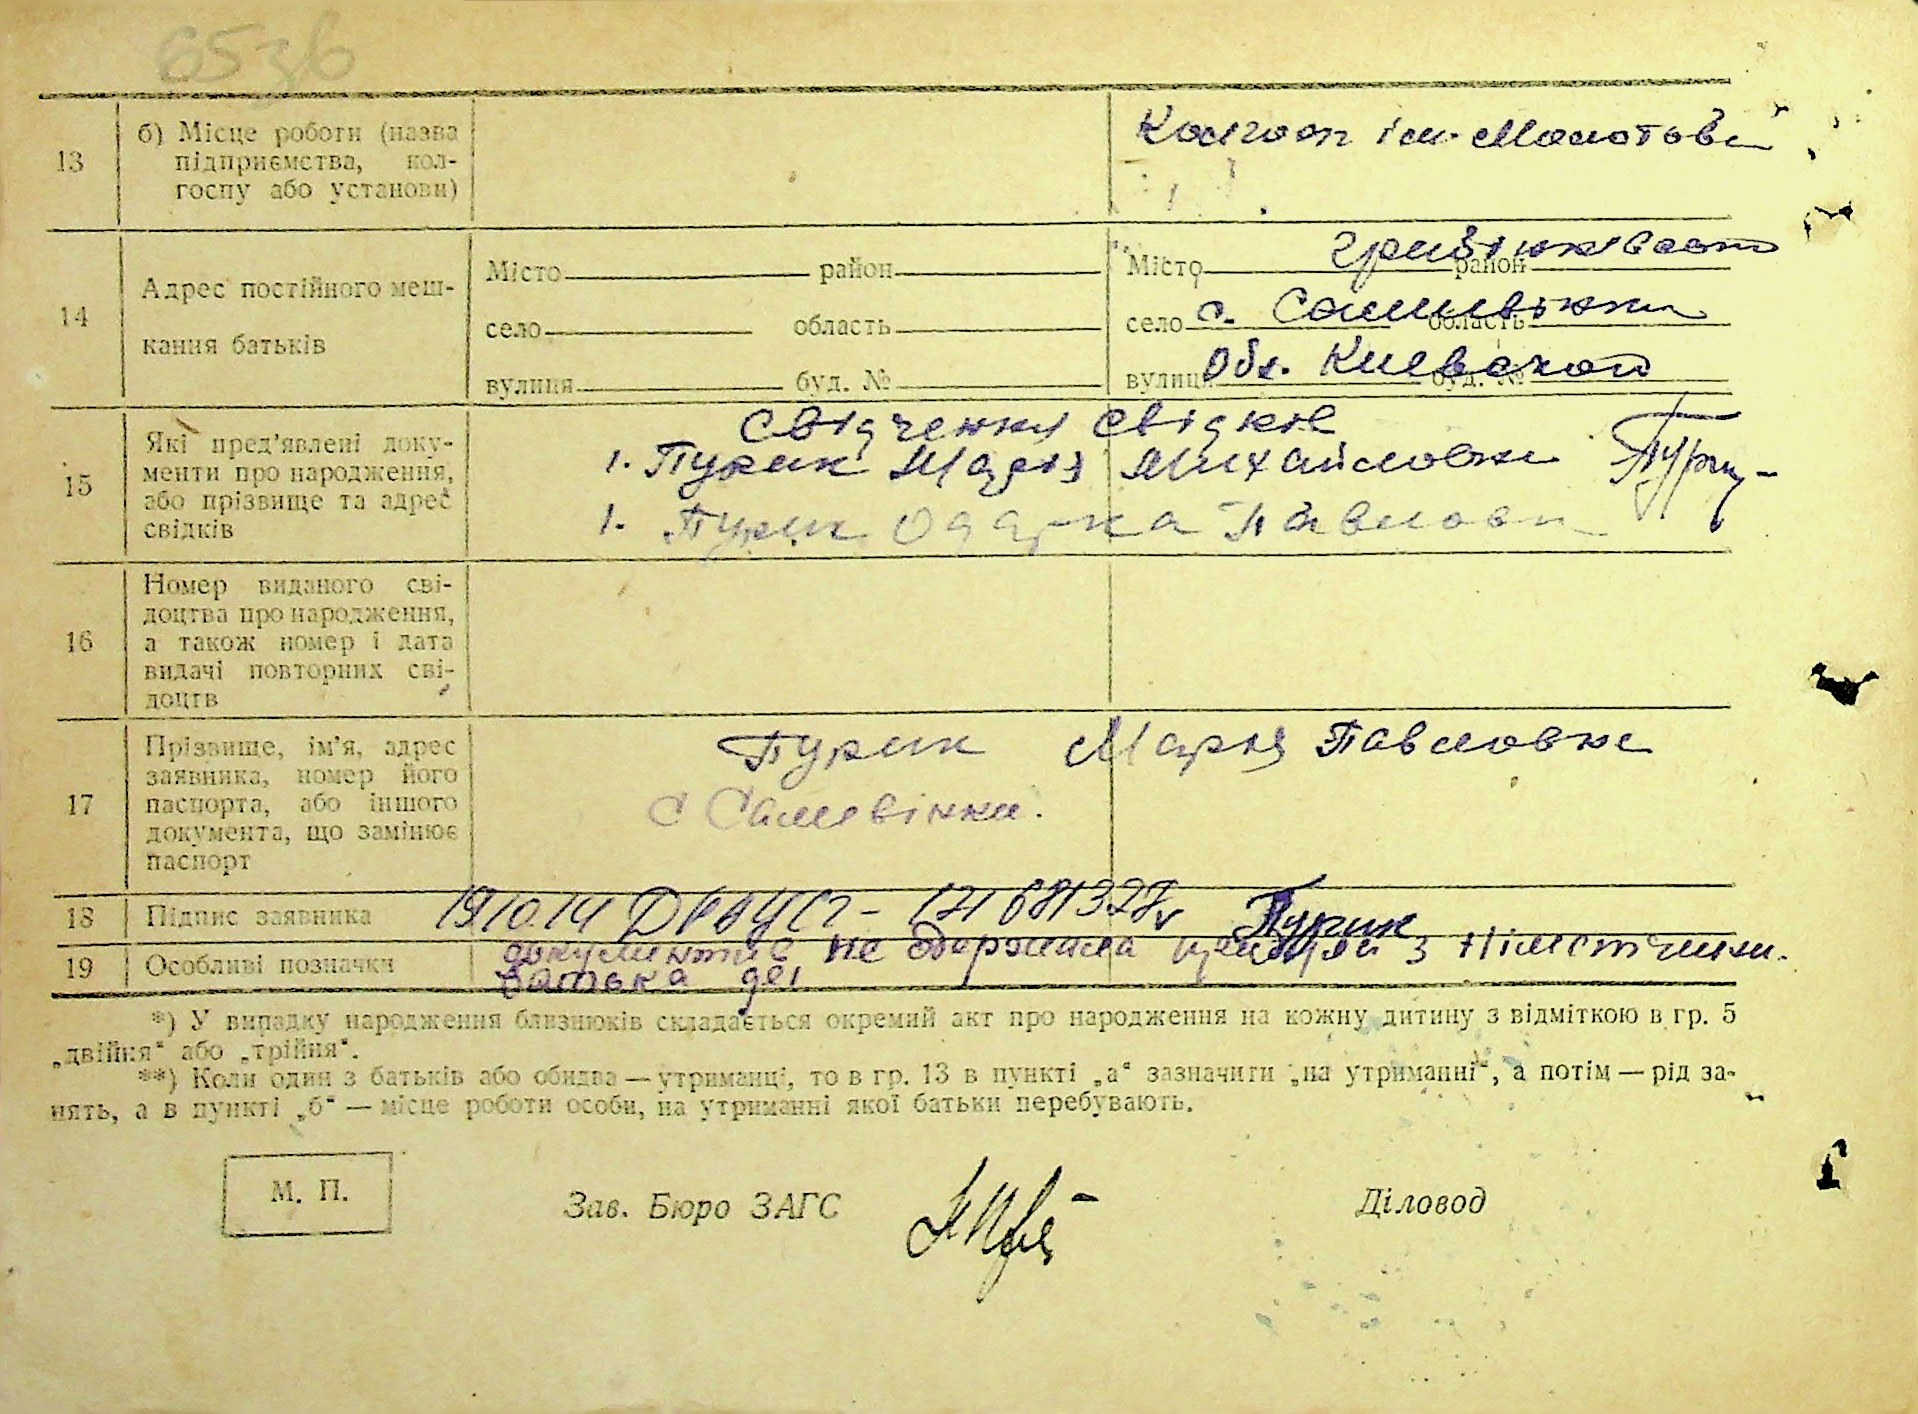 13 б) Місце роботи (назва
підприємства, кол-
госпу або установи)
Колгосп ім. Молотова
14 Адрес постійного меш-
кання батьків
Місто район
село область
вулиця буд. №
Місто район
село с. Саливінки область
вулиця Обл. Киевской буд. №
15 Які пред'явлені доку-
менти про народження,
або прізвище та адрес
свідків
Свідчення свідків
1. Пурик Марія Михайловна
1. Пурик Одарка Павловн
16 Номер виданого сві-
доцтва про народження,
а також номер і дата
видачі повторних сві-
доцтв
17 Прізвище, ім'я, адрес
заявника, номер його
паспорта, або іншого
документа, що замінює
паспорт
Пурик Марія Павловна
с Саливінки.
18 Підпис заявника
Пурик
19 Особливі позначки
документів не одержала з Німеччини.
батька
*) У випадку народження близнюків складається окремий акт про народження на кожну дитину з відміткою в гр. 5
„двійня“ або „трійня“.
**) Коли один з батьків або обидва — утриманці, то в гр. 13 в пункті „а“ зазначити „на утриманні“, а потім — рід за-
нять, а в пункті „б“ — місце роботи особи, на утриманні якої батьки перебувають.
М. П.
Зав. Бюро ЗАГС
Діловод